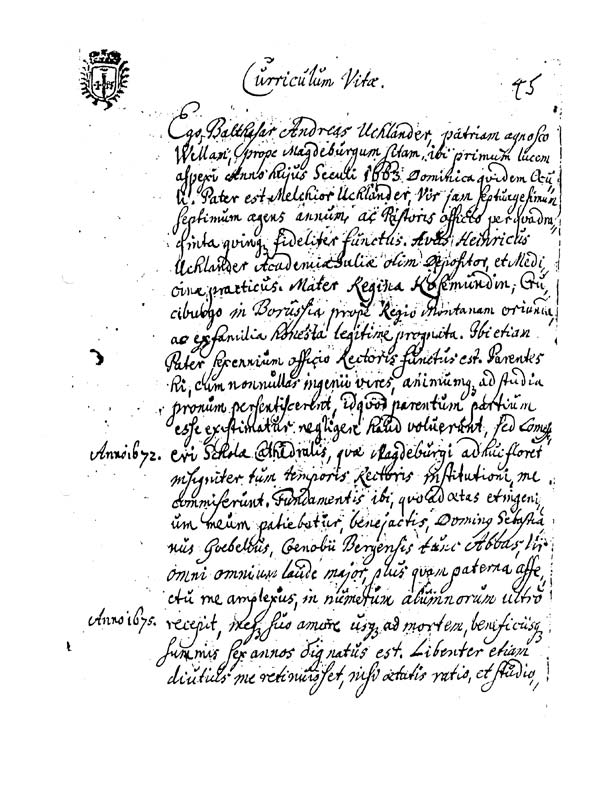 Curriculum Vitæ.
45
Ego, Balthasar Andreas Uchlander, patriam agnosco
Wellam, prope Magdeburgum sitam, ibi primum lucem
aspexi Anno hujus Seculi 1663 Dominica quidem Exau-
di. Pater est Melchior Uchlander, Vir jam septuagesimum
septimum agens annum, ac Pastoris officio per quadra-
ginta quinq; fideliter functus. Avus, Heinricus
Uchlander Academiæ Juliæ olim Depositor, et Medi-
cinæ practicus. Mater Regina Rosemundin, Cru-
ciburgo in Borussia prope Regio Montanam oriunda,
ac ex familia honesta legitime prognata. Ibi etian
Pater sexennium officio Rectoris functus est. Parentes
hi, cum nonnullas ingenii vires, animumq; ad studia
pronum persentiscerent, id quod parentum partium
esse existimatur, negligere haud voluerunt, sed
Anno 1672. Schola Cathedralis, quæ Magdeburgi adhuc floret
insigniter tum temporis Rectoris institutioni, me
commiserunt. Fundamentis ibi, quoad ætas et ingeni-
um meum patiebatur, benejactis, Domino Sebastia
nus Goebelius, Cœnobii Bergensis tunc Abbas, Vir
omni omnium laude major, plus quam paterna affe-
ctu me amplexus, in numerum alumnorum ultro
Anno 1675. recepit, meq; suo amore usq; ad mortem, beneficiisq;
summis sex annos dignatus est. Libenter etiam
diutius me retinuisset, nisi ætatis ratio, et studio,